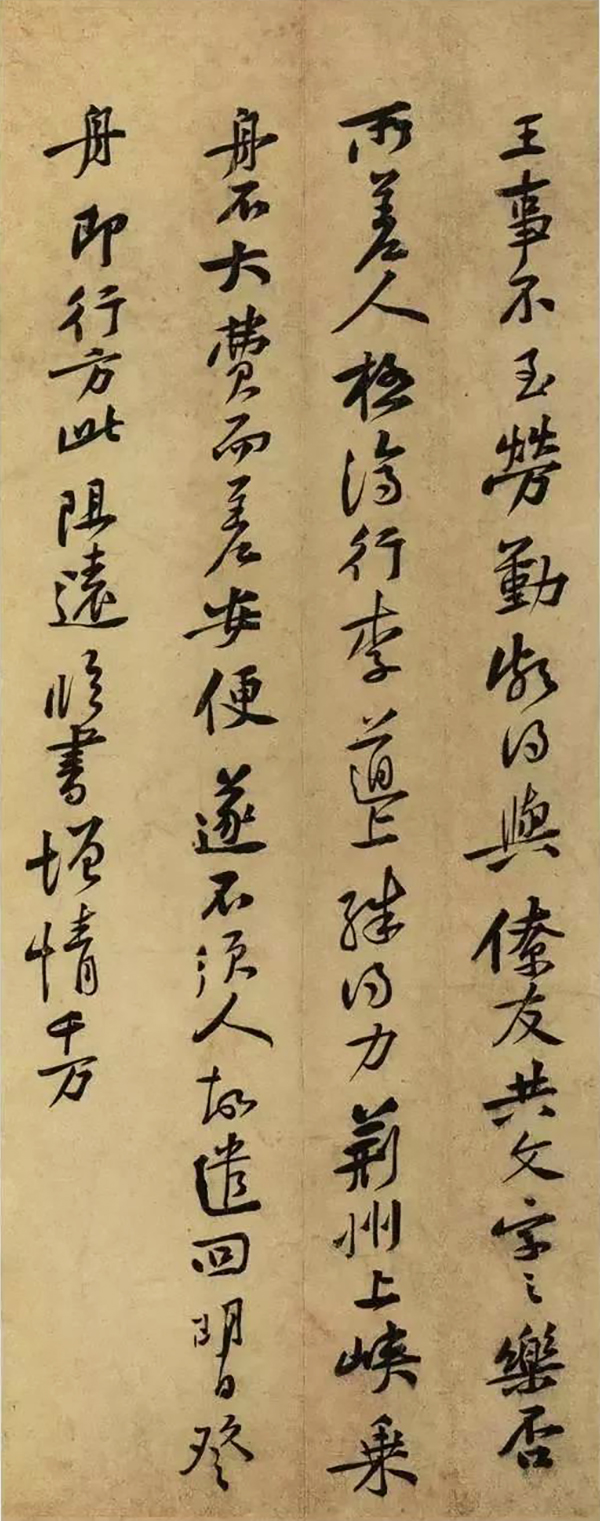 王事不至勞勤頗得與僚友共文字之樂否
所差人極濟行李道上殊得力荊州上峽乗
舟不大費而差安便遂不須人故遣回明日發
舟即行方此阻遠臨書增情千万